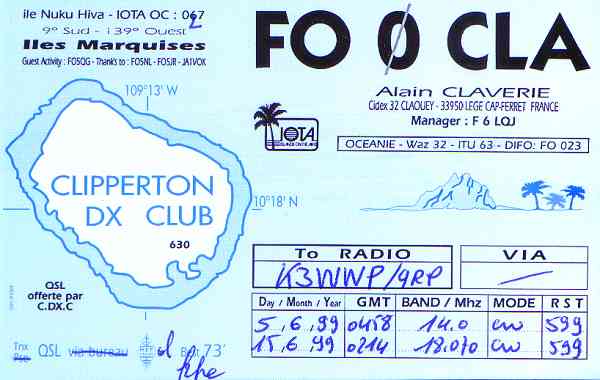 île Nuku Hiva - IOTA OC : 027
9° Sud - 139° Ouest
Iles Marquises
Guest Activity : FO5QG - Thank's to : FO5NL - FO5JR - JA1VOK
FO 0 CLA
Alain CLAVERIE
Cidex 32 CLAOUEY - 33950 LEGE CAP-FERRET FRANCE
Manager : F 6 LQJ
IOTA
OCEANIE - Waz 32 - ITU 63 - DIFO: FO 023
109°13' W
CLIPPERTON
DX CLUB
630
10°18 N
QSL
offerte par
C.DX.C
To RADIO VIA
K3WWP/QRP —
Day / Month / Year GMT BAND / Mhz MODE R S T
5,6,99 0458 14.0 CW 599
15,6,99 0214 18.070 CW 599
Tnx QSL via bureau 73'
Pse